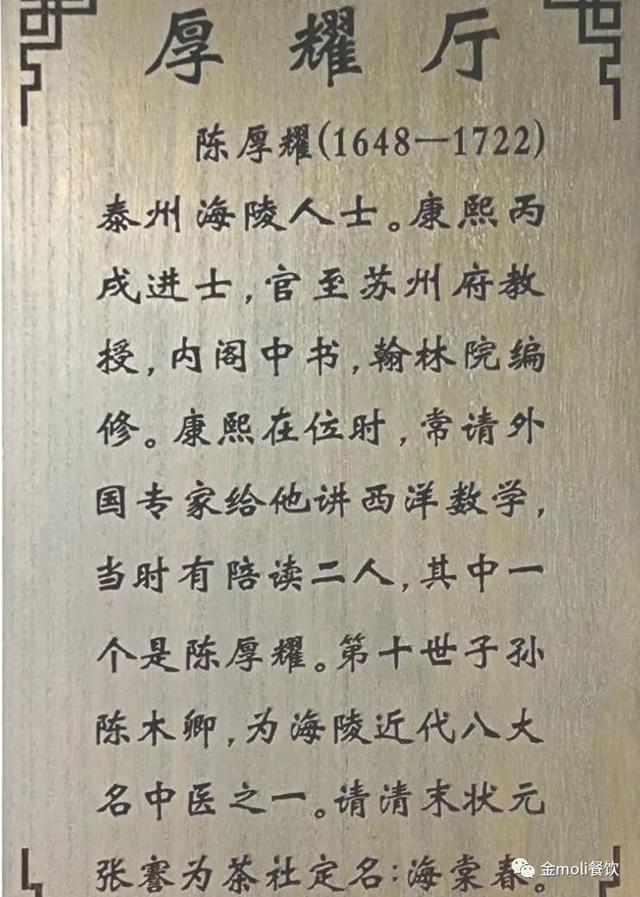 厚耀厅
陈厚耀(1648—1722)
泰州海陵人士。康熙丙
戌进士,官至苏州府教
授,内阁中书,翰林院编
修。康熙在位时,常请外
国专家给他讲西洋数学,
当时有陪读二人,其中一
个是陈厚耀。第十世子孙
陈木卿,为海陵近代八大
名中医之一。请清末状元
张謇为茶社定名:海棠春。
金moli餐饮